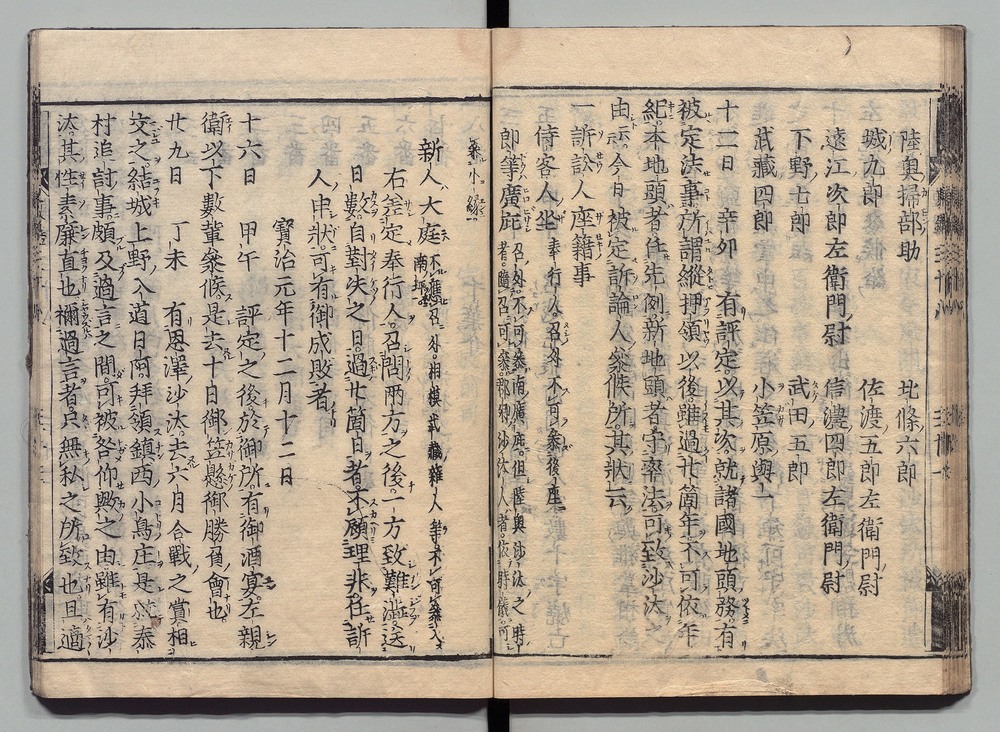 陸奥掃部助 北條六郎
城九郎 佐渡五郎左衛門尉
遠江次郎左衛門尉 信濃四郎左衛門尉
下野七郎 武田五郎
武藏四郎 小笠原與一
十二日 辛卯 有評定以其次就諸國地頭務有
被定法事所謂縱押領以後雖過廿箇年不可依年
紀本地頭者任先例新地頭者守率法可致沙汰之
由云今日被定訴論人參候所其狀云
一訴訟人座籍事
侍客人坐 奉行人召外不可參後座
郎等廣庇 召外不可參南廣庇但陸奥沙汰之時
者隨召可參郡郷沙汰人者依時儀可
參小緣
雜人大庭 不應召外相模武藏雜人等不可參入
南坪
右差定奉行人召問兩方之後一方致難澁送
日數自對决之日過廿箇日者不顧理非任訴
人申狀可有御成敗者
寶治元年十二月十二日
十六日 甲午 評定之後於御所有御酒宴左親
衛以下數輩參候是去十日御笠懸御勝負會也
廿九日 丁未 有恩澤沙汰去六月合戰之賞相
交之結城上野入道日阿拜領鎮西小鳥庄是就泰
村追討事頗及過言之間可被咎仰歟之由雖有沙
汰其性素廉直也禰過言者只無私之所致也且適